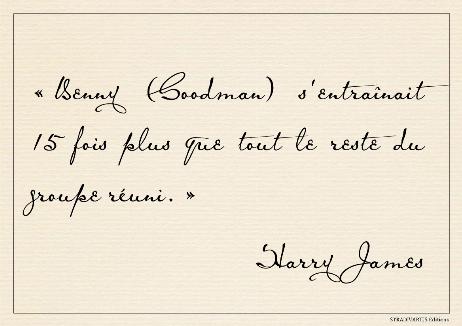 « Benny (Goodman) s'entraînait
15 fois plus que tout le reste du
groupe réuni. »
Harry James
STRADIVARIUS Editions